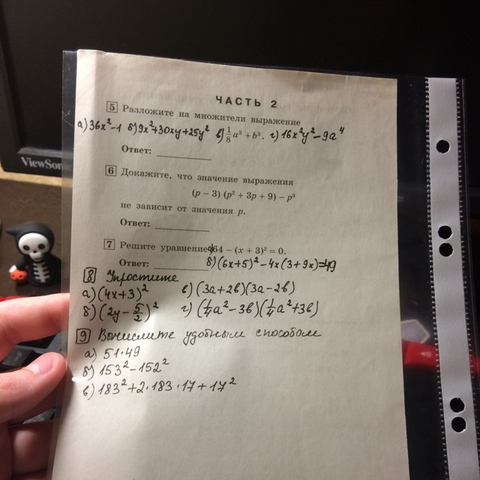 ЧАСТЬ 2
5 Разложите на множители выражение
а) 36x²-1 б) 9x²+30xy+25y² в) 1/8 a³ + b³. г) 16x²y²-9a⁴
Ответ:
6 Докажите, что значение выражения
(p − 3) (p² + 3p + 9) − p³
не зависит от значения p.
Ответ:
7 Решите уравнение а) 64 − (x + 3)² = 0.
Ответ: б) (6x+5)²-4x(3+9x)=49
8 Упростите
а) (4x+3)² в) (3a+2b)(3a-2b)
б) (2y-5/2)² г) (1/4a²-3b)(1/4a²+3b)
9 Вычислите удобным способом
а) 51·49
б) 153²-152²
в) 183²+2·183·17+17²
ViewSonic